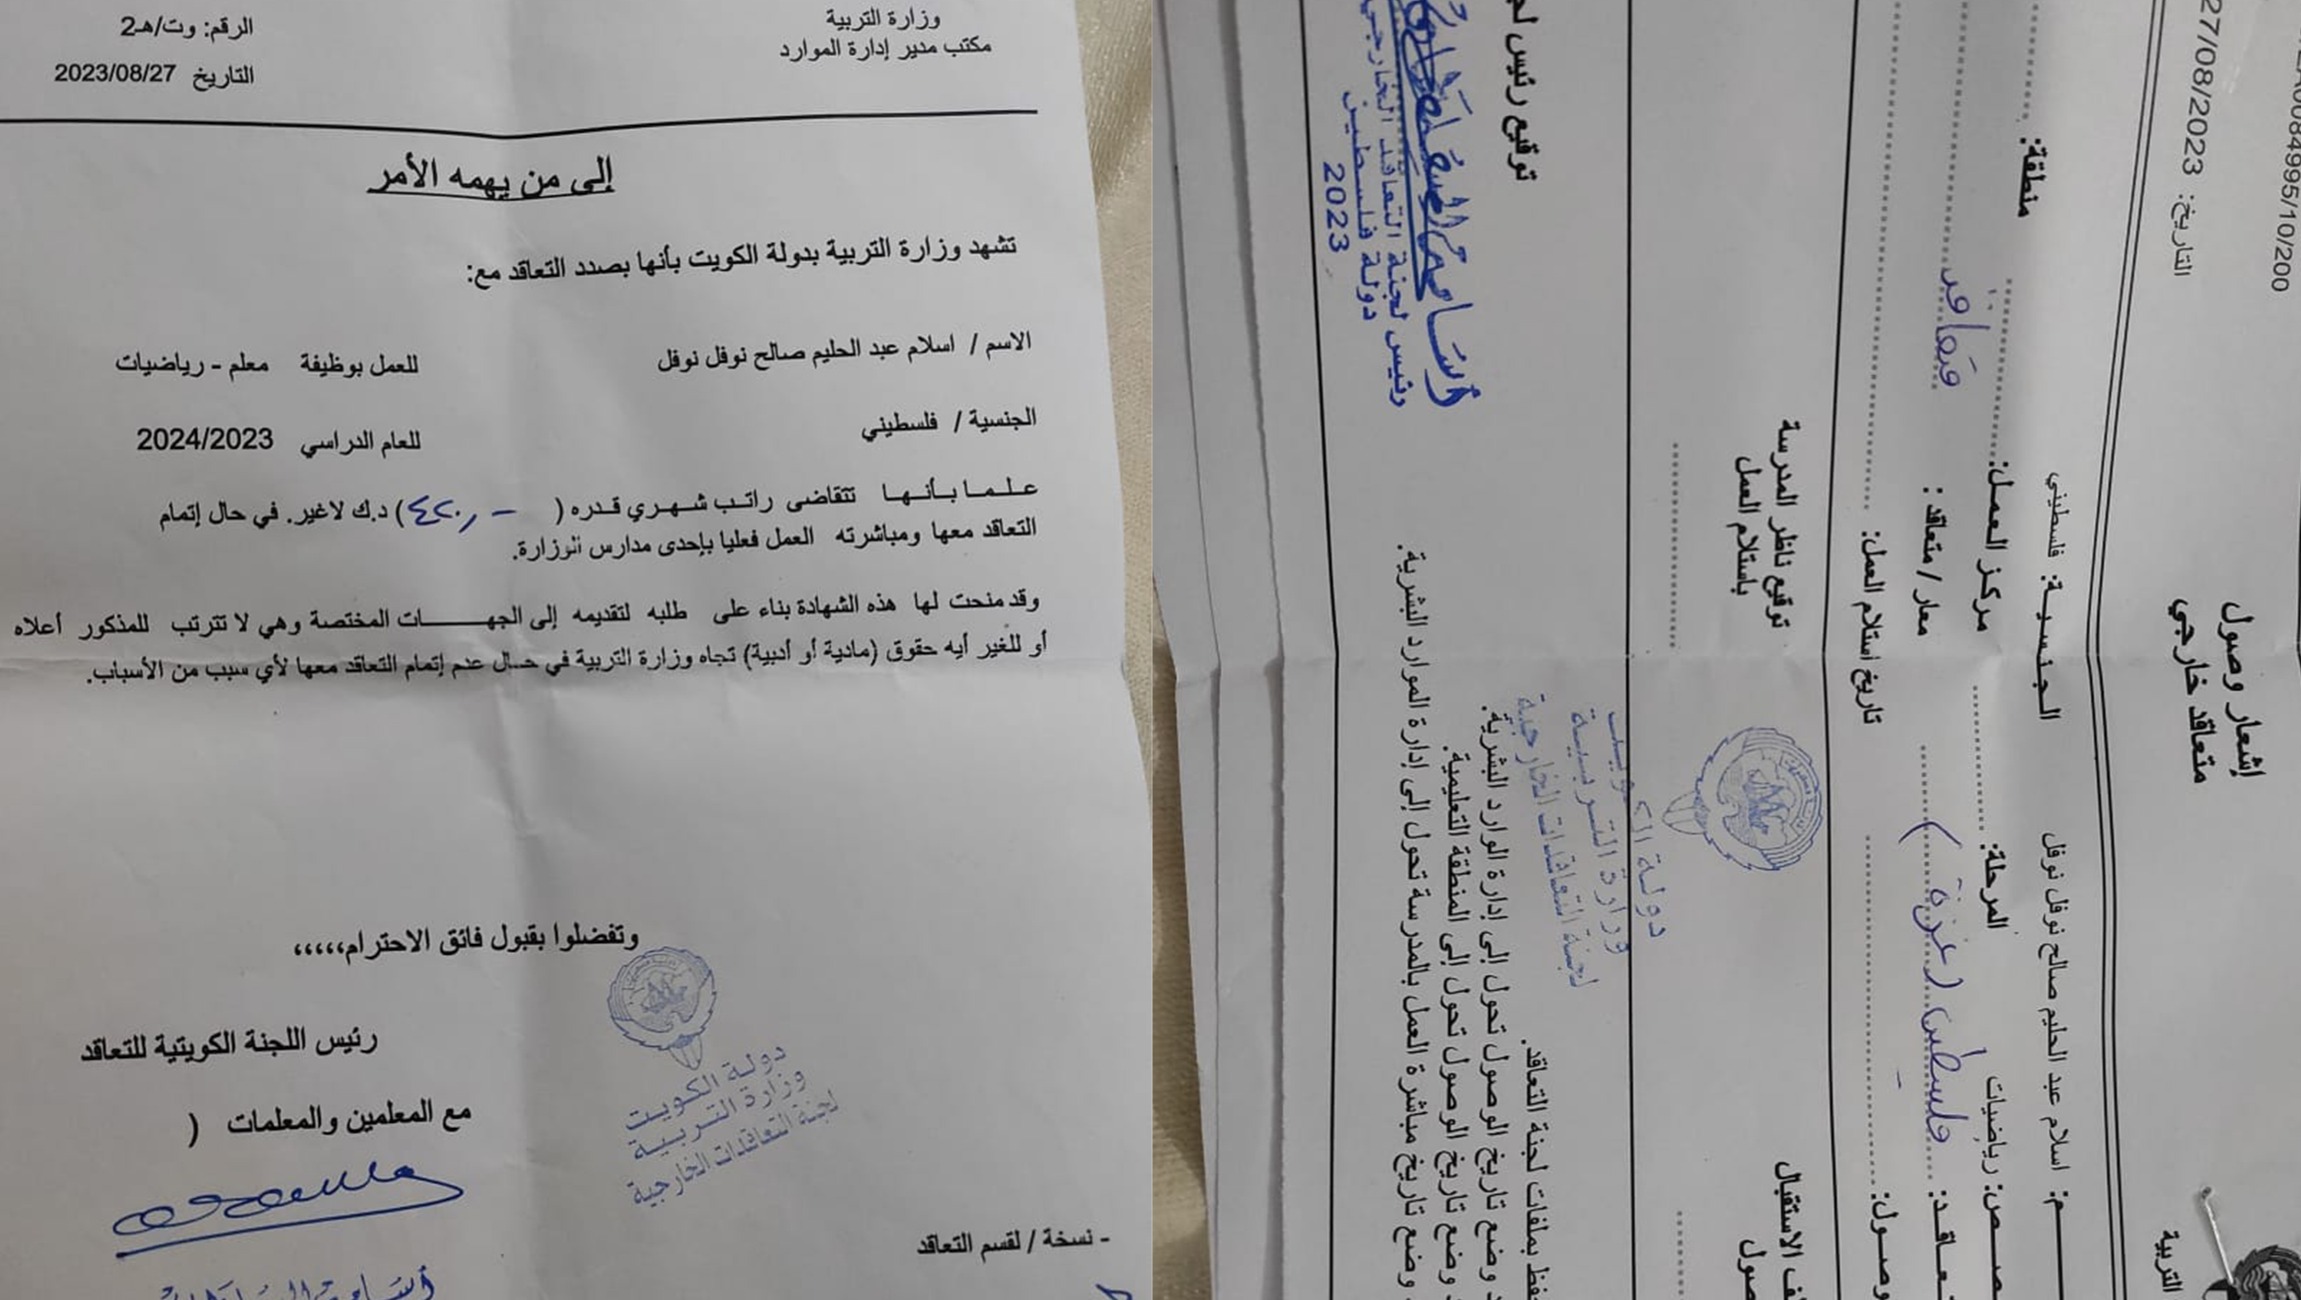 وزارة التربية
مكتب مدير إدارة الموارد
الرقم: وت/هـ2
التاريخ 2023/08/27
إلى من يهمه الأمر
تشهد وزارة التربية بدولة الكويت بأنها بصدد التعاقد مع:
الاسم / اسلام عبد الحليم صالح نوفل نوفل للعمل بوظيفة معلم - رياضيات
الجنسية / فلسطيني للعام الدراسي 2024/2023
علما بأنها تتقاضى راتب شهري قدره ( ٤٢٠٫ - ) د.ك لاغير. في حال إتمام
التعاقد معها ومباشرته العمل فعليا بإحدى مدارس الوزارة.
وقد منحت لها هذه الشهادة بناء على طلبه لتقديمه إلى الجهات المختصة وهي لا تترتب للمذكور أعلاه
أو للغير أيه حقوق (مادية أو أدبية) تجاه وزارة التربية في حال عدم إتمام التعاقد معها لأي سبب من الأسباب.
وتفضلوا بقبول فائق الاحترام،،،،،
رئيس اللجنة الكويتية للتعاقد
مع المعلمين والمعلمات (
دولة الكويت
وزارة التربية
لجنة التعاقدات الخارجية
- نسخة / لقسم التعاقد
0084995/10/200
التاريخ: 27/08/2023
التربية
إشعار وصول
متعاقد خارجي
م: اسلام عبد الحليم صالح نوفل نوفل الجنسية: فلسطيني منطقة:
ص: رياضيات المرحلة: مركز العمل:
عاقد: فلسطين (غزة) معار / متعاقد: متعاقد
وصول: تاريخ استلام العمل:
ف الاستقبال
صول
توقيع ناظر المدرسة
باستلام العمل
دولة الكويت
وزارة التربية
لجنة التعاقدات الخارجية
توقيع رئيس لج
رئيس لجنة التعاقد الخارجي
دولة فلسطين
2023
حفظ بملفات لجنة التعاقد.
د وضع تاريخ الوصول تحول إلى إدارة الوارد البشرية.
د وضع تاريخ الوصول تحول إلى المنطقة التعليمية.
وضع تاريخ مباشرة العمل بالمدرسة تحول إلى إدارة الموارد البشرية.